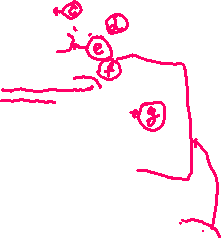 c
d
e
f
g